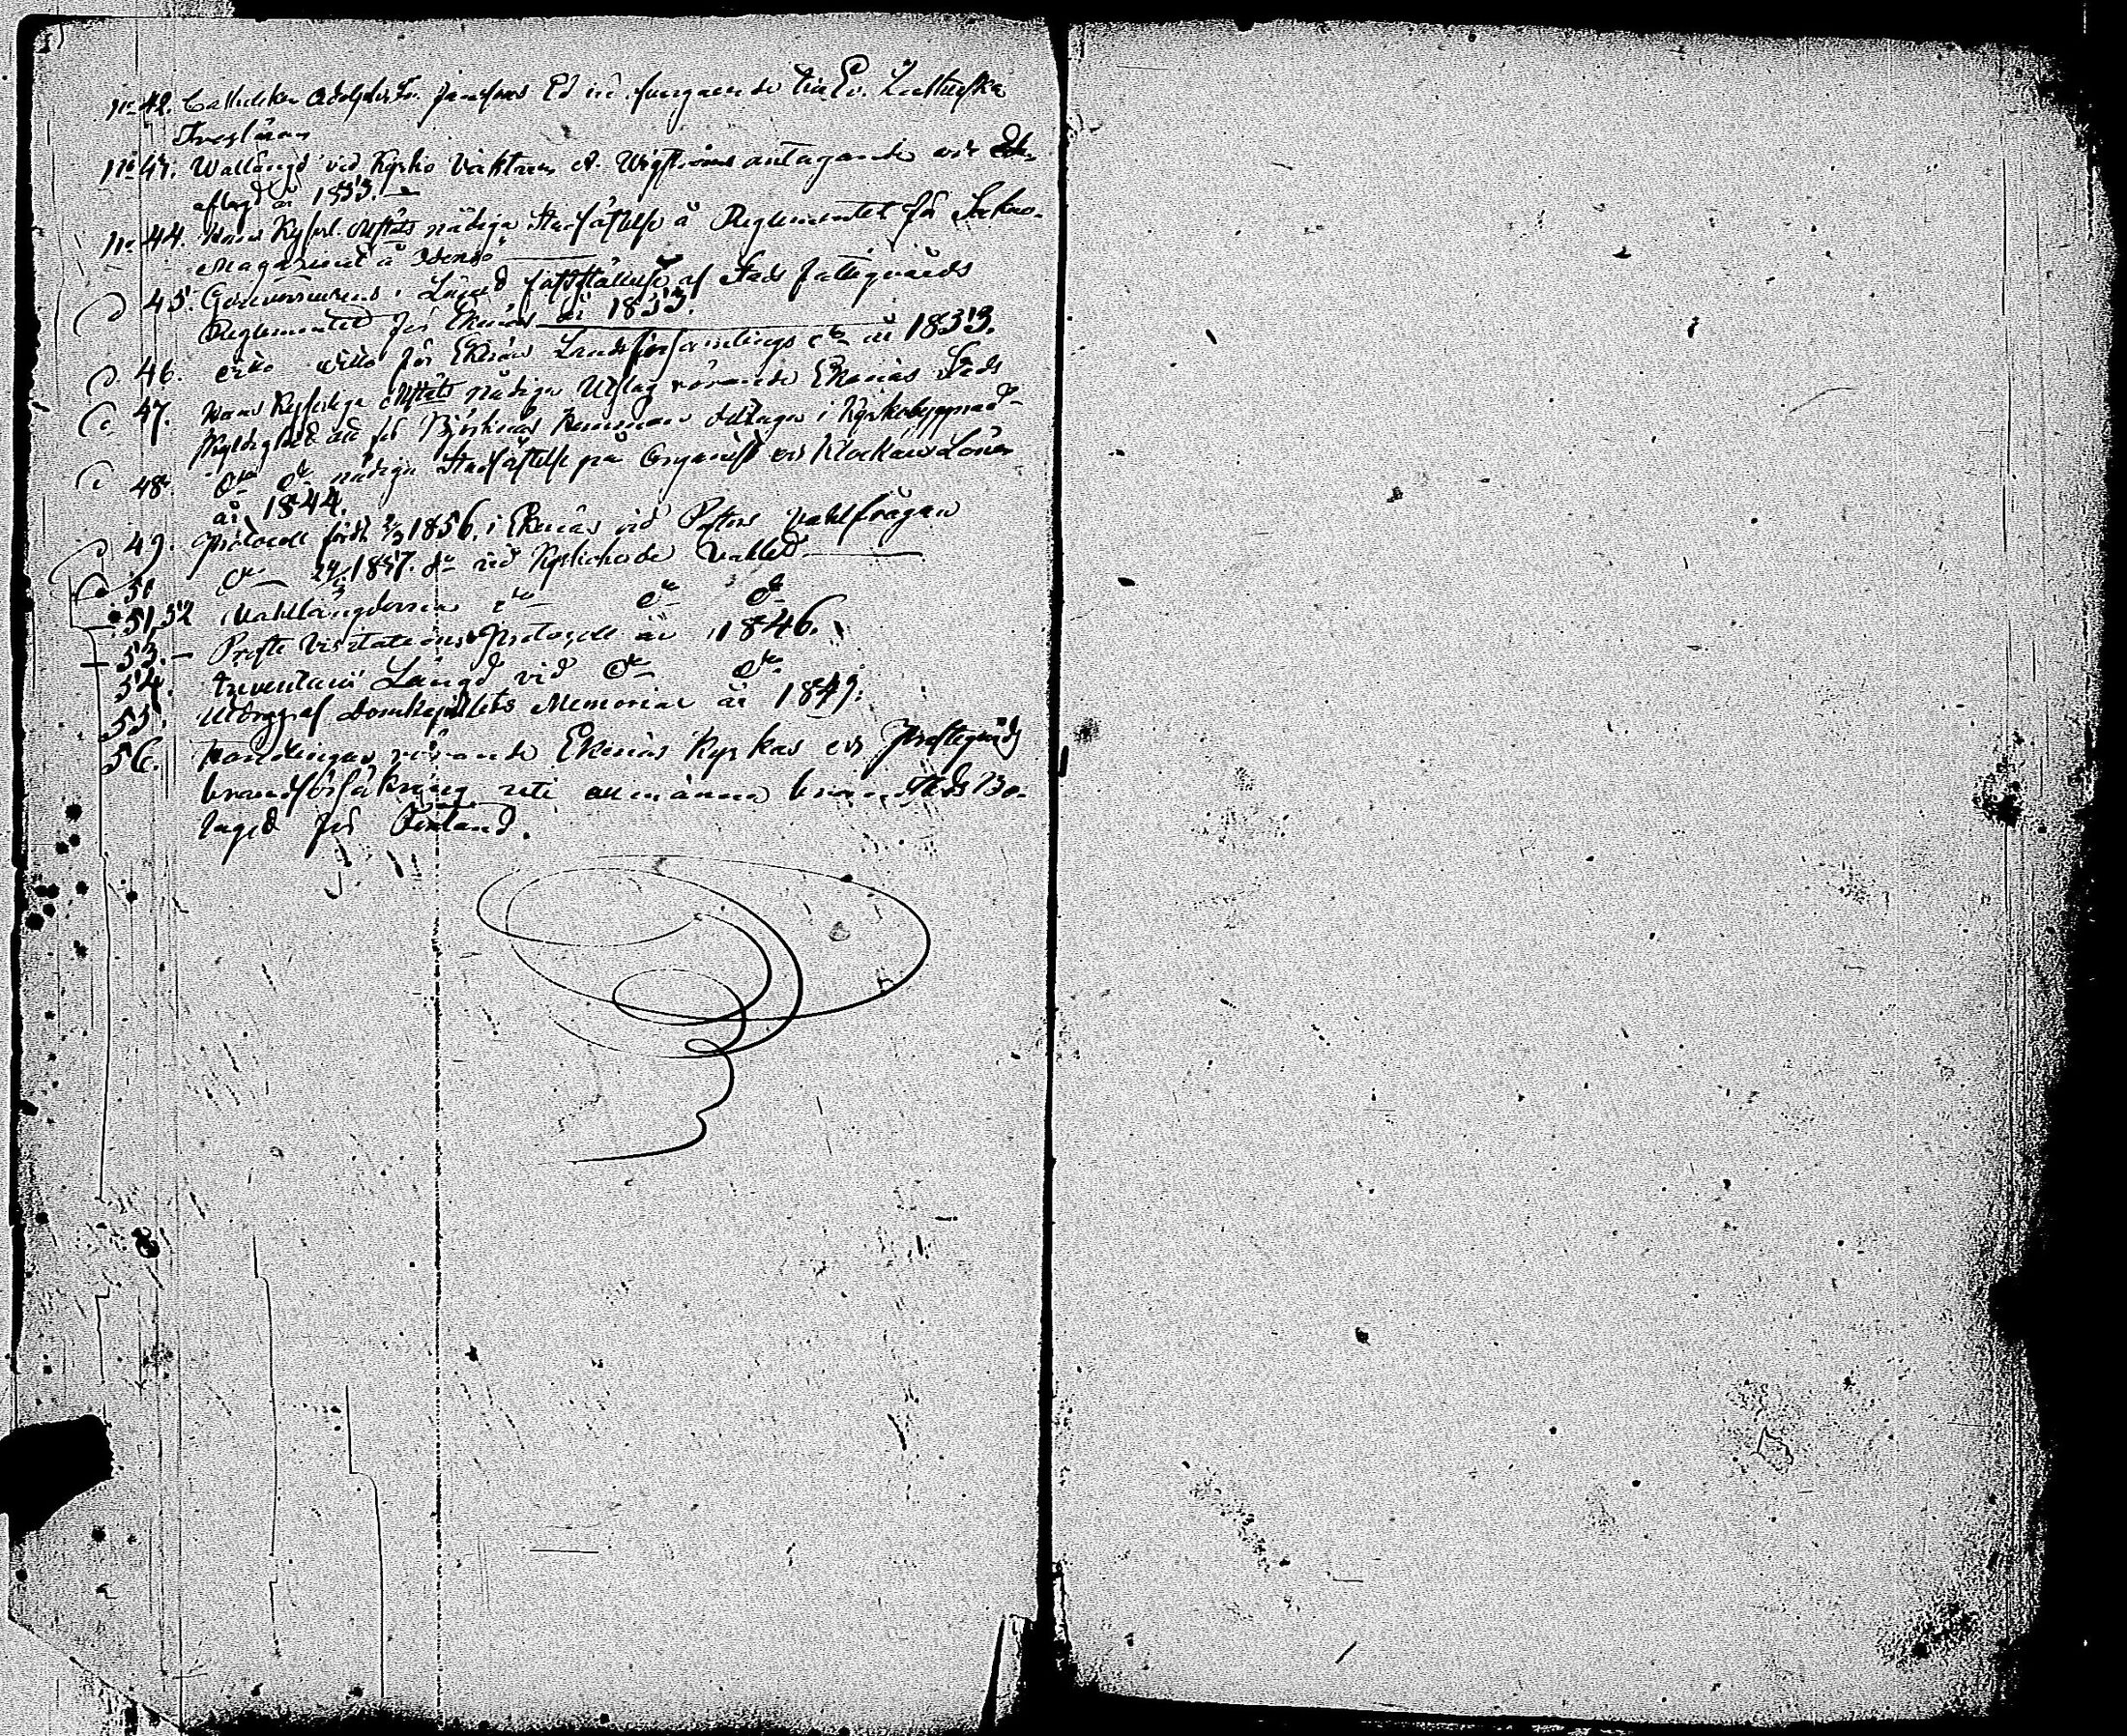 No 42. Catholiken Adolph Fr. Jansons Ed vid öfvergående till Ev. Lutherska
Trosläran
No 43. Wallängd vid Kyrko Väktaren A. Wigströms antagande och Ed
aflagd år 1833.
No 44. Hans Kejserl. Maj:ts nådiga Stadfästelse å Reglementet för Sockne-
Magasinet å Odensö
45. Gouverneurens i Länet fastställelse af Stads fattigvårds
Reglementet för Ekenäs år 1833.
46. dito dito för Ekenäs Landsförsamlings do år 1833.
47. Hans Kejserliga Maj:ts nådiga Utslag rörande Ekenäs Stads
skyldighet att för Björknäs hemman deltaga i Kyrkobyggnad
48. do do nådiga Stadfästelse på Organist och Klockars Lönen
år 1844.
49. Protocoll fördt 1856. i Ekenäs vid Pastors Valfrågan
50 do 1857. do vid Kyrkoherde Vahlet
51,52 Vahllängderna do do do
53. Proste Visitations Protocoll år 1846.
54. Inventarii Längd vid do do
55. Utdrag af Domkapitlets Memorial år 1849.
56. Handlingar rörande Ekenäs Kyrkas och Prostegårds
brandförsäkring uti allmänna brandstods Bo-
laget för Finland.